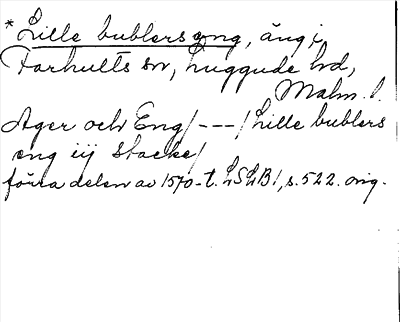 *Lille bublers eng, äng i
Farhults sn, Luggude hd,
Malm. l.
Ager och Eng/---/Lille bublers
eng iij stacke/
förra delen av 1570-t. LSLB1, s. 522. orig.